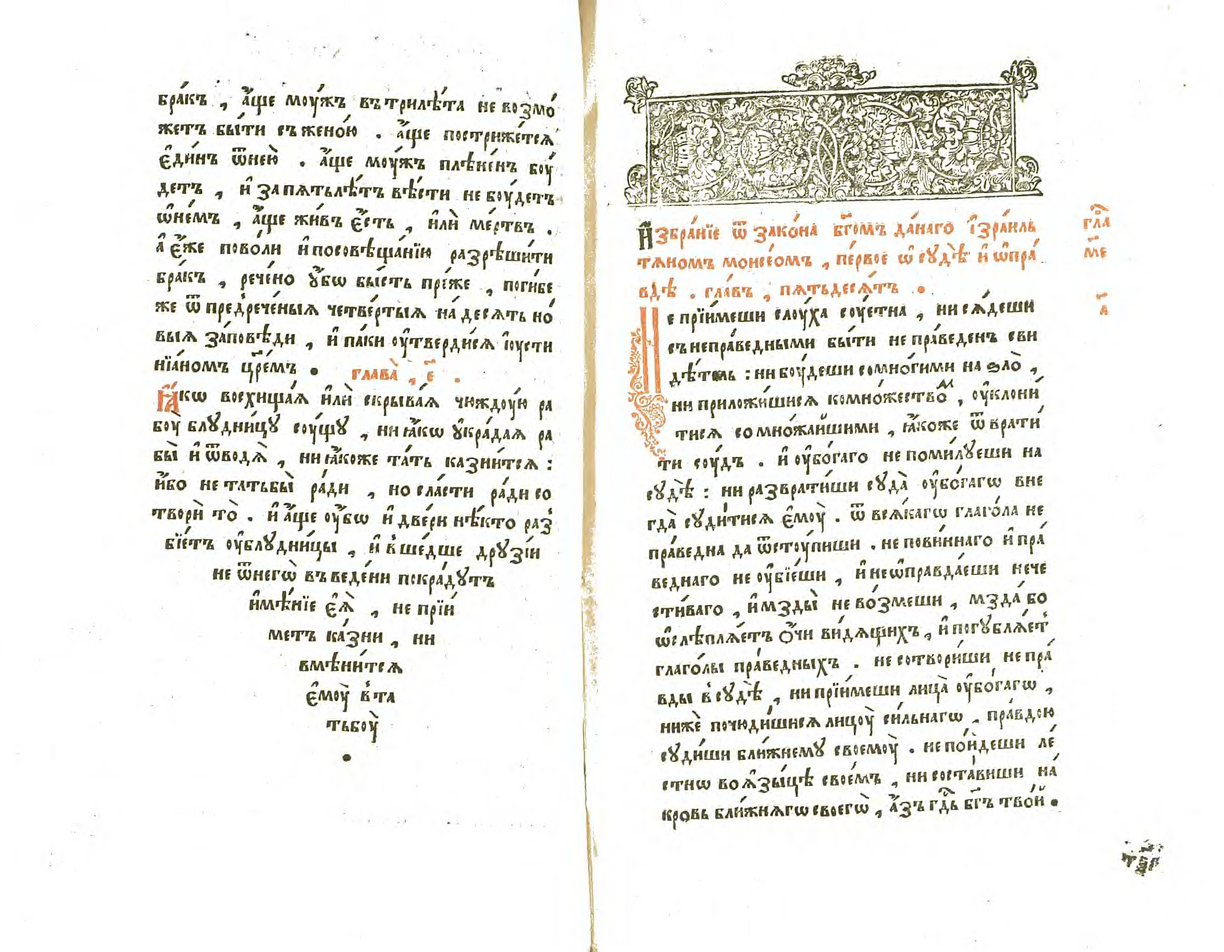 бра́къ , а҆́ще моу́жъ вътрилѣ́та не возмо́
жетъ бы́ти съженѻ́ю . а҆́ще пострижетсѧ
є҆ди́нъ ѿнею̀ . а҆́ще моу́жъ плѣне́нъ боу́
детъ , и҆ запѧтьлѣ́тъ вѣ́сти не боу́детъ
ѡ҆не́мъ , а҆́ще жи́въ є҆́сть , и҆лѝ ме́ртвъ .
а є҆́же поволи и҆посовѣща́нїю разрѣши́ти
бра́къ , рече́но ᲂу҆́бѡ бы́сть пре́же , поги́бе
же ѿ предрече́ныѧ четве́ртыѧ на́десѧть но́
выѧ за́повѣди , и҆ па́ки ᲂу҆тверди́сѧ і҆ᲂусти
нїа́номъ цр҃е́мъ . глава̀ , є҃ .
Ꙗ҆́кѡ восхища́ѧ и҆лѝ скрыва́ѧ чюждоу́ю ра
боу̀ блꙋдни́цꙋ соу́щꙋ , ни ꙗ҆́кѡ ᲂу҆кра́даѧ ра
бы̀ и҆ ѿводѧ̀ , ни ꙗ҆́коже та́ть казни́тсѧ :
и҆́бо не татьбы̀ ра́ди , но сла́сти ра́ди со
творѝ то̀ . и҆ а҆́ще ᲂу҆́бѡ и҆ две́ри нѣ́кто раз̾
бїе́тъ ᲂу҆блꙋдни́цы , и҆ в̾ше́дше дрꙋзі́и
не ѿнегѡ̀ въведе́ни покра́дꙋтъ
и҆мѣ́нїе є҆ѧ̀ , не прїи́
метъ ка́зни , ни
вмѣни́тсѧ
є҆моу̀ в̾та
тьбоу̀
.
И҆збра́нїе ѿ зако́на бг҃омъ да́наго і҆зра́иль
тѧномъ моисе́омъ , пе́рвое ѡ сꙋдѣ̀ и҆ ѡ҆пра́
вдѣ . гла́въ , пѧтьдесѧ́тъ .
гла
ме
а҃
Не прїи́меши слоу́ха соу́етна , ни сѧ́деши
съ непра́ведными бы́ти не пра́веденъ сви
дѣ́тель : ни боу́деши сомно́гими на ѕло̀ ,
ни приложи́шисѧ комно́жеством , ᲂу҆клони́
тисѧ сомножа́йшими , ꙗ҆́коже ѿврати́
ти соу́дъ . и҆ ᲂу҆бо́гаго не поми́лꙋеши на
сꙋдѣ̀ : ни развра́тиши сꙋда̀ ᲂу҆бо́гагѡ вне
гда̀ сꙋди́тисѧ є҆моу̀ . ѿ всѧ́кагѡ глаго́ла не
пра́ведна да ѿстоу́пиши . не пови́ннаго и҆ пра́
веднаго не ᲂу҆бїе́ши , и҆ не ѡ҆правда́еши нече
сти́ваго , и҆ мзды̀ не во́змеши , мзда́ бо
ѡ҆слѣплѧ́етъ ѻ҆́чи ви́дѧщихъ , и҆ погꙋблѧ́ет̾
глаго́лы пра́ведныхъ . не сотвори́ши не пра́
вды в̾ сꙋдѣ̀ , ни прїи́меши лица̀ ᲂу҆бо́гагѡ ,
нижѐ почюди́шисѧ лицоу̀ си́льнагѡ , пра́вдою
сꙋ́диши бли́жнемꙋ своемоу̀ . не по́йдеши ле́
стїѡ во ꙗ҆зы́цѣ свое́мъ , ни соста́виши на́
кровь бли́жнѧгѡ своегѡ̀ , а҆́зъ гд҇ь бг҃ъ тво́й .